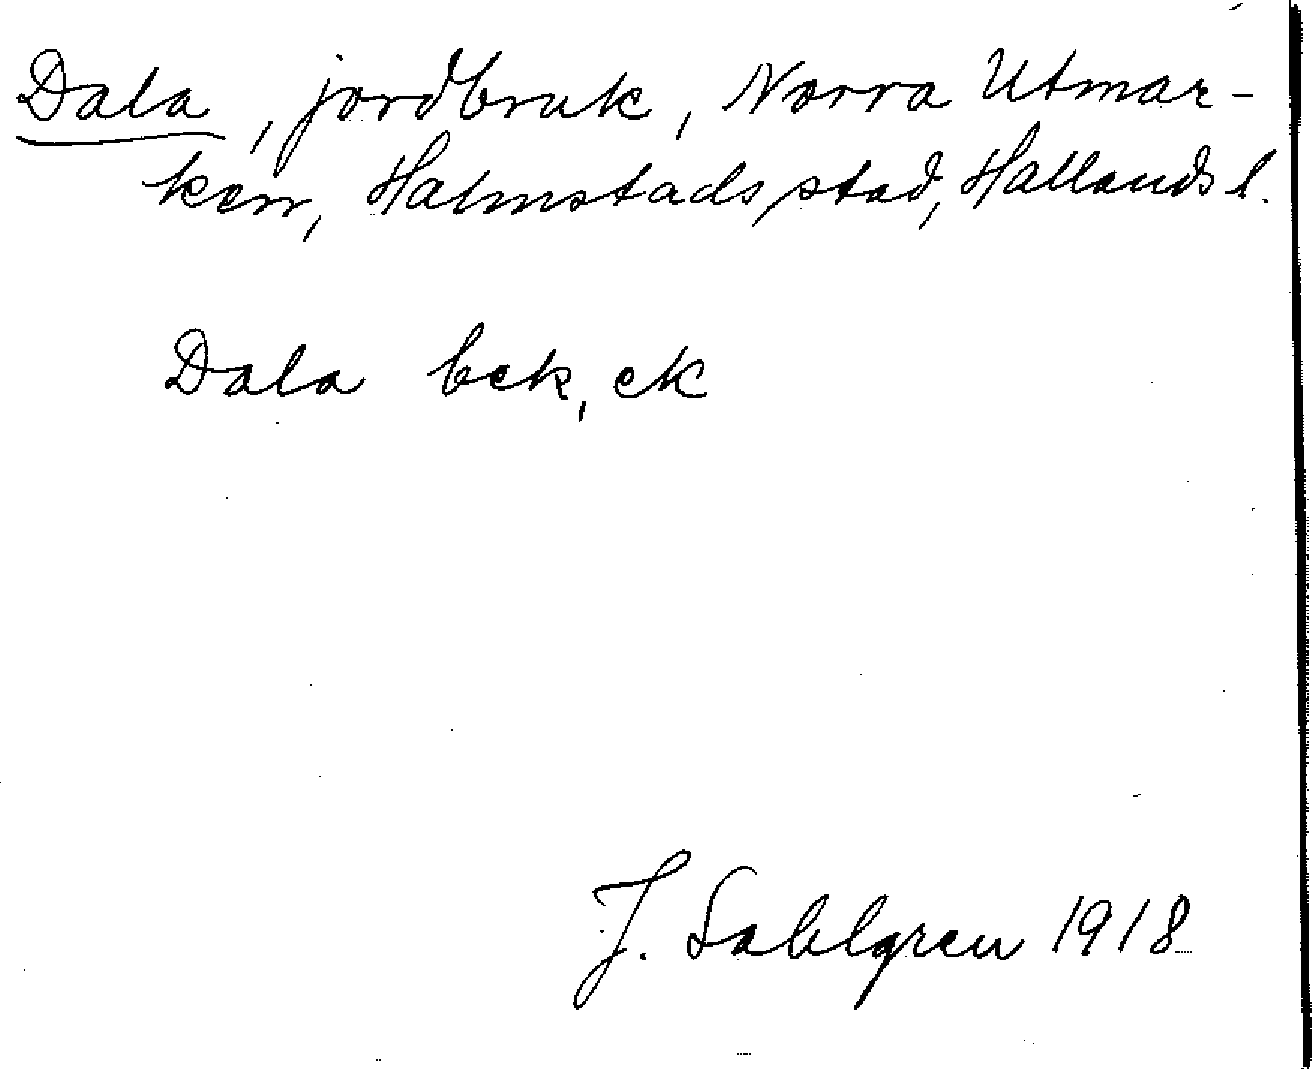 Dala, jordbruk, Norra Utmar-
ken, Halmstads stad, Hallands l.
Dala bek, ek
J. Sahlgren 1918